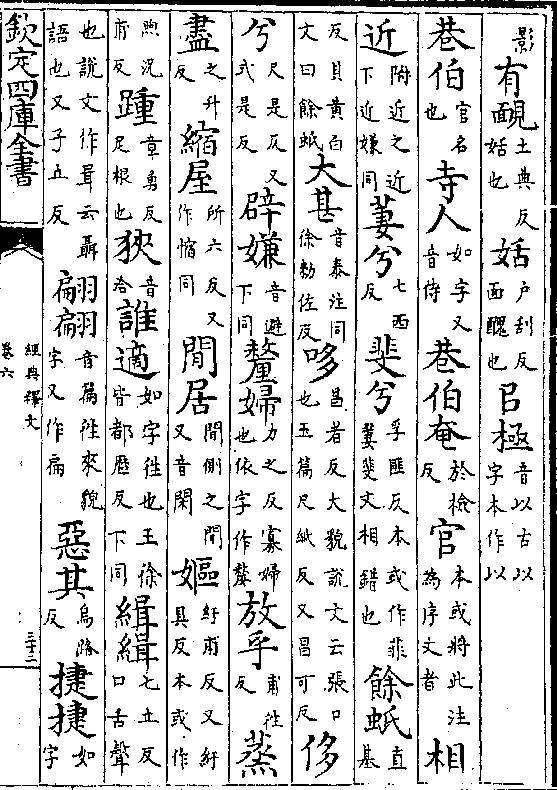 影有靦土典反姡也姡户刮反面醜也㠯極音以古以字本作以
巷伯官名也寺人如字又音侍巷伯奄於檢反官本或將此注為序文者相
近附近之近下近嫌同萋兮七西反斐兮孚匪反本或作菲萋斐文相錯也餘蚳直基
反貝黄白文曰餘蚳大甚音泰注同徐勑佐反哆昌者反大貌說文云張口也玉篇尺紙反又昌可反侈
兮尺是反又式是反辟嫌音避下同釐婦力之反寡婦也依字作嫠放乎甫往反蒸
盡之升反縮屋所六反又作㥧同閒居閒側之閒又音閑嫗紆甫反又紆具反本或作
煦況甫反踵章勇反足根也狹音洽誰適如字往也王徐皆都歷反下同緝緝七立反口舌聲
也說文作咠云聶語也又子立反翩翩音篇往來貌字又作扁惡其烏路反捷捷如字
欽定四庫全書
經典釋文
卷六
三十二